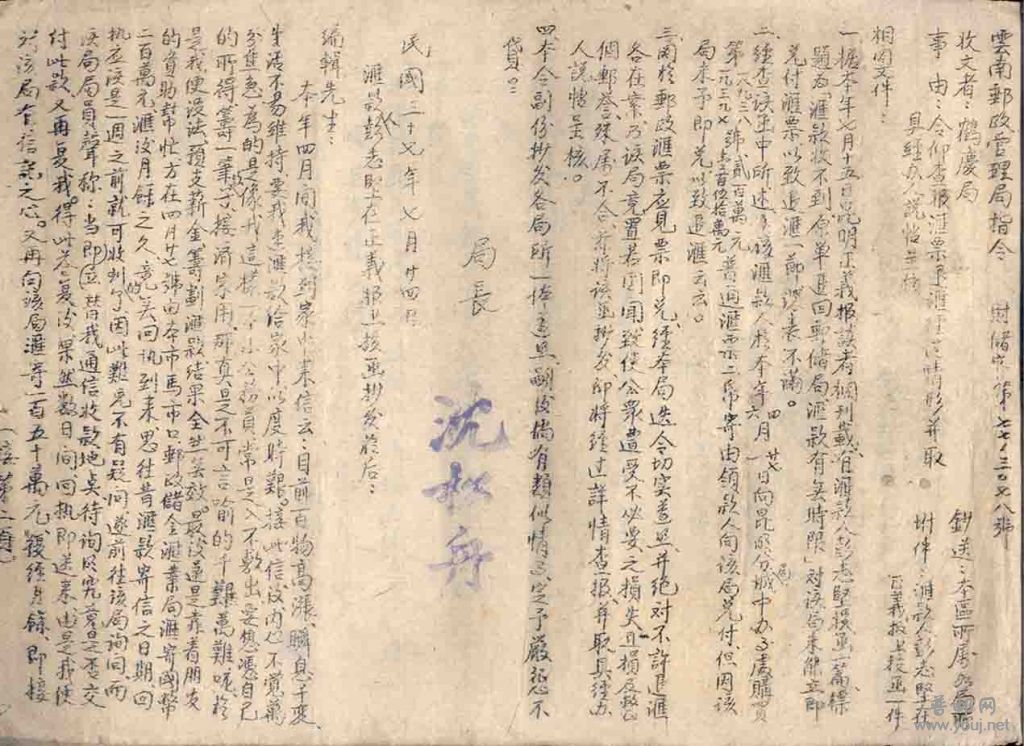 雲南郵政管理局指令 財儲字第七七/三〇七八號
收文者：鶴慶局 鈔送：本區所屬各局
事由：令仰查報匯票退匯經過情形并取具經办人說帖呈核 附件：匯款人彭志堅在正義报上投函一件
相関文件：
一、據本年七月十五日昆明正義报讀者欄刊載有匯款人彭志堅投函一篇標
題為「匯款收不到原單退回郵儲局匯款有無時限」对該局未能立即
兌付匯票以致退匯一節深表不滿。
二、經查該函中所述了該匯款人於本年四月廿七日六月一日向昆明分局城中办事處購買
第一九三八號貳百萬元
一九三九號壹百伍拾萬元普通匯票二帋寄由領款人向該局兌付但因該
局未予即兌以致退匯云云。
三、関於郵政匯票应見票即兌經本局迭令切实遵照并絕对不許退匯
各在案乃該局竟置若罔聞致使公眾遭受不必要之損失且損及敝公
個郵誉殊属不合茲將該函抄发即將經过詳情查报并取具經办
人說帖呈核。
四、本令副份抄发各局所一体遵照嗣後倘有類似情示定予嚴惩不
貸。
局長 沈松舟
民國三十七年七月廿四日
匯款人彭志堅在正義报上投函抄发於后：
編輯先生：
本年四月間我接到家中來信云：目前百物高漲、瞬息千变
生活不易維持要我赶匯款給家中以度時艱。接此信後內心不覺萬
分焦急為的是像我這樣一个小公務員常是入不敷出要想憑自己
的所得籌一筆款接濟家用那真是不可言喻的千難萬難呢於
是我便設法預支薪金籌劃匯款結果全生無效。最後还是靠着朋友
的資助幫忙方在四月廿七號由本市馬市口郵政儲金匯業局匯寄國幣
二百萬元、匯後月餘之久竟無回执到來。思往昔匯款寄信之日期回
执应該是一週之前就可收到的了因此難免不有疑问遂前往該局詢问而
該局局員聲称：当即立替我通信收款地点待詢明究竟是否交
付此款又再复我。得此答复後果然数日间回执即送來由是我便
对該局存信託之心。又再向該局匯寄一百五十萬元、複經月餘、即接
（接第二頁）
普個网
www.youj.net